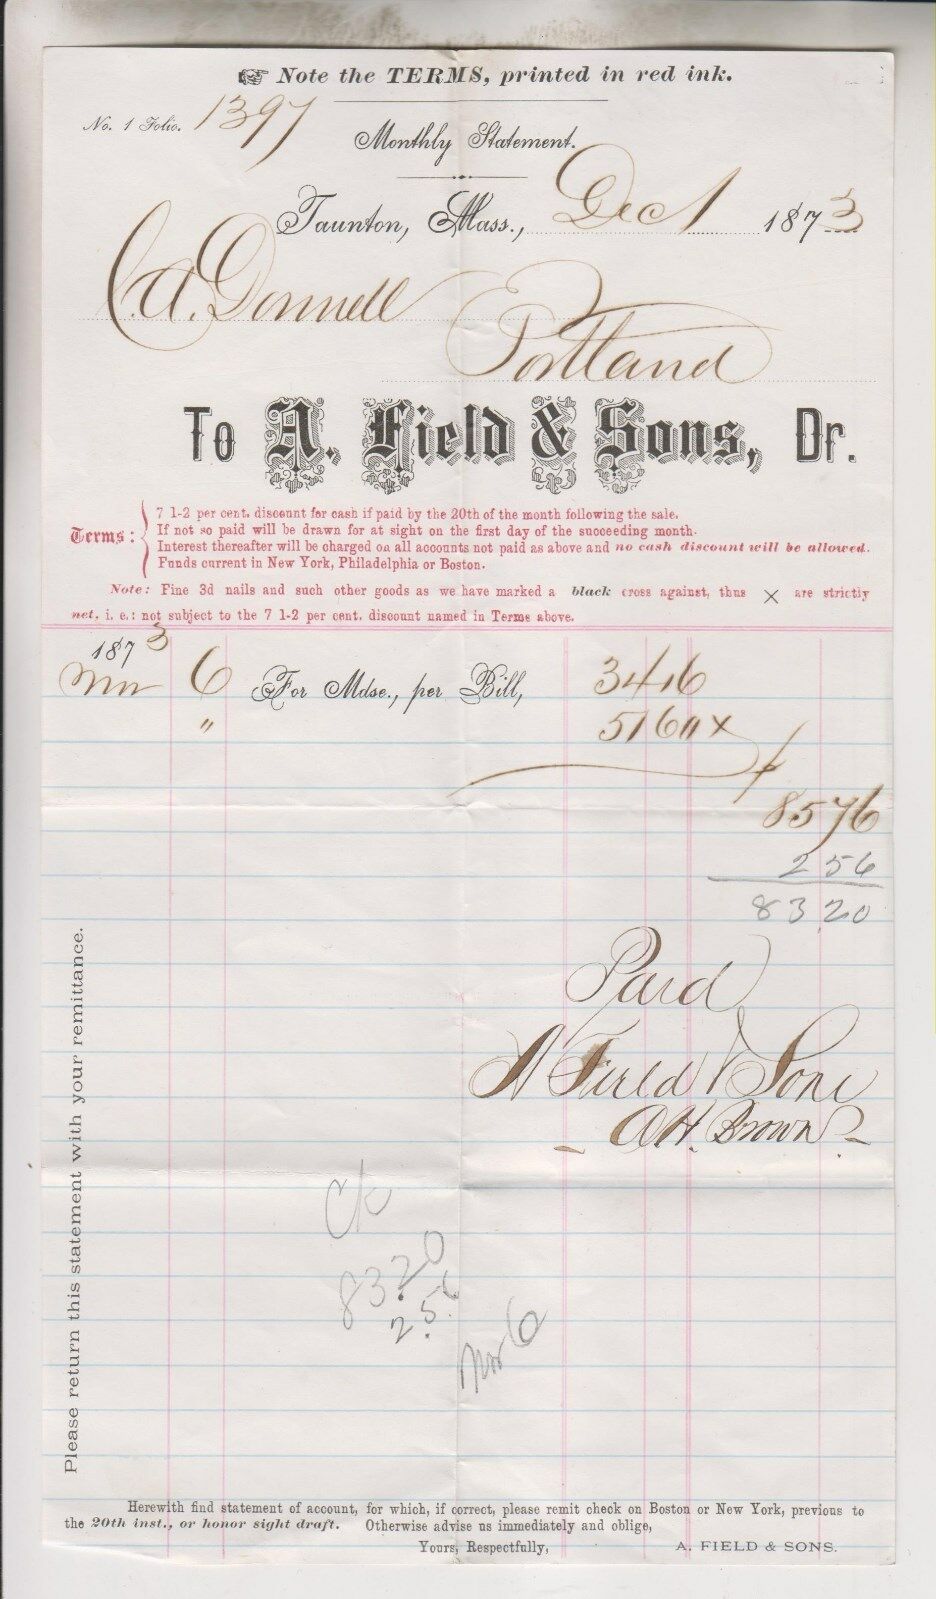 ☞ Note the TERMS, printed in red ink.
No. 1 Folio. 1397
Monthly Statement.
Taunton, Mass., Dec 1 1873
C. A. Donnell
Portland
To A. Field & Sons, Dr.
Terms:
7 1-2 per cent. discount for cash if paid by the 20th of the month following the sale.
If not so paid will be drawn for at sight on the first day of the succeeding month.
Interest thereafter will be charged on all accounts not paid as above and no cash discount will be allowed.
Funds current in New York, Philadelphia or Boston.
Note: Fine 3d nails and such other goods as we have marked a black cross against, thus × are strictly
net, i. e.: not subject to the 7 1-2 per cent. discount named in Terms above.
1873
Nov 6 For Mdse., per Bill, 34 16
" 51 60 x
85 76
2 56
83 20
Paid
A Field & Sons
A H. Brown
Ck
83.20
2.56
Nov 6
Please return this statement with your remittance.
Herewith find statement of account, for which, if correct, please remit check on Boston or New York, previous to
the 20th inst., or honor sight draft. Otherwise advise us immediately and oblige,
Yours, Respectfully, A. FIELD & SONS.